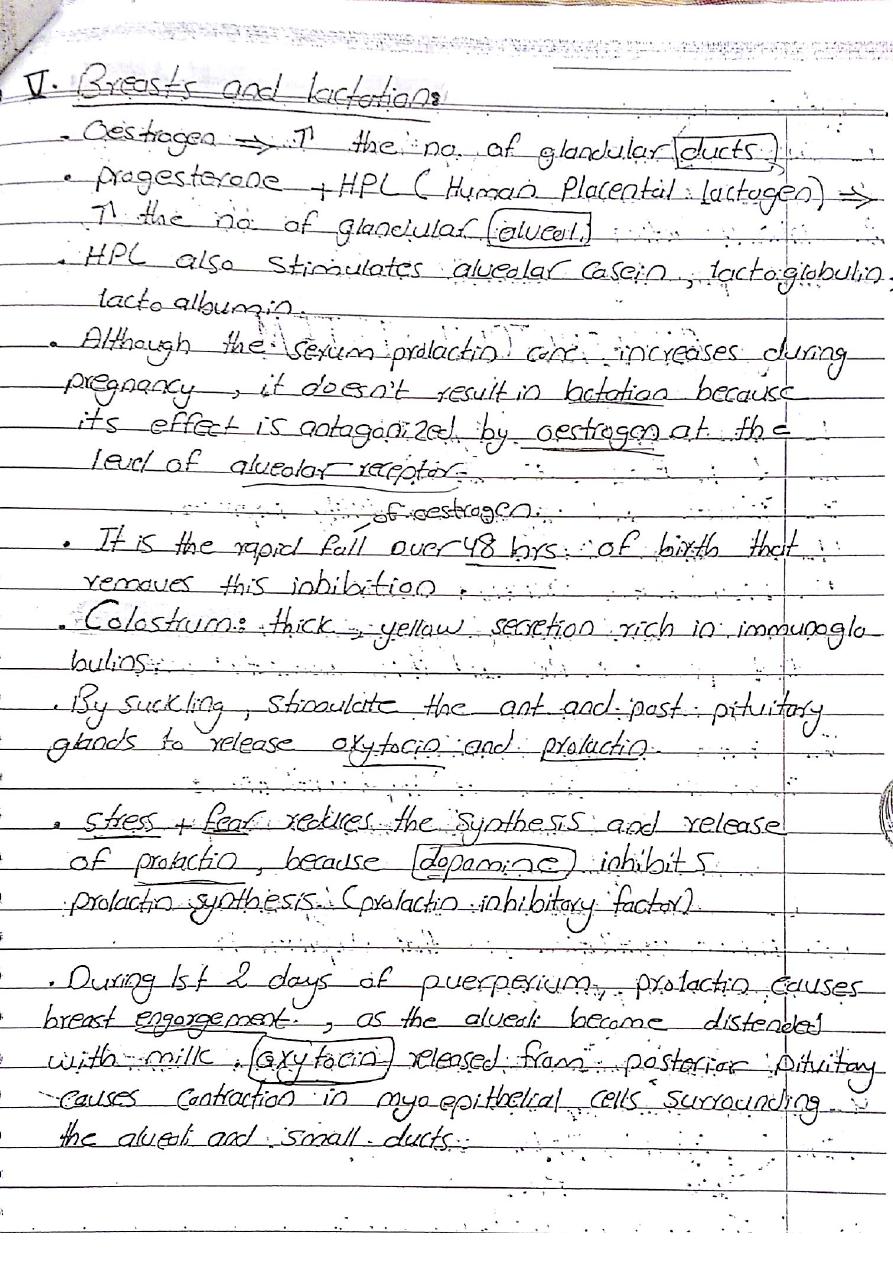 V. Breasts and lactation:
. Oestrogen ⇒ ↑ the no. of glandular ducts.
. progesterone + HPL ( Human Placental lactogen) ⇒
↑ the no of glandular alveoli
. HPL also stimulates alveolar casein, lactoglobulin,
lacto albumin.
. Although the serum prolactin conc increases during
pregnancy, it doesn't result in lactation because
its effect is antagonized by oestrogen at the
level of alveolar receptor.
of oestrogen.
. It is the rapid fall over 48 hrs of birth that
removes this inhibition.
. Colostrum: thick, yellow secretion rich in immunoglo
bulins.
. By suckling, stimulate the ant and post pituitary
glands to release oxytocin and prolactin.
. stress + fear reduces the synthesis and release
of prolactin, because dopamine inhibits
prolactin synthesis (prolactin inhibitory factor).
. During 1st 2 days of puerperium, prolactin causes
breast engorgement, as the alveoli become distended
with milk. oxytocin released from posterior pituitary
causes contraction in myoepithelial cells surrounding
the alveoli and small ducts.